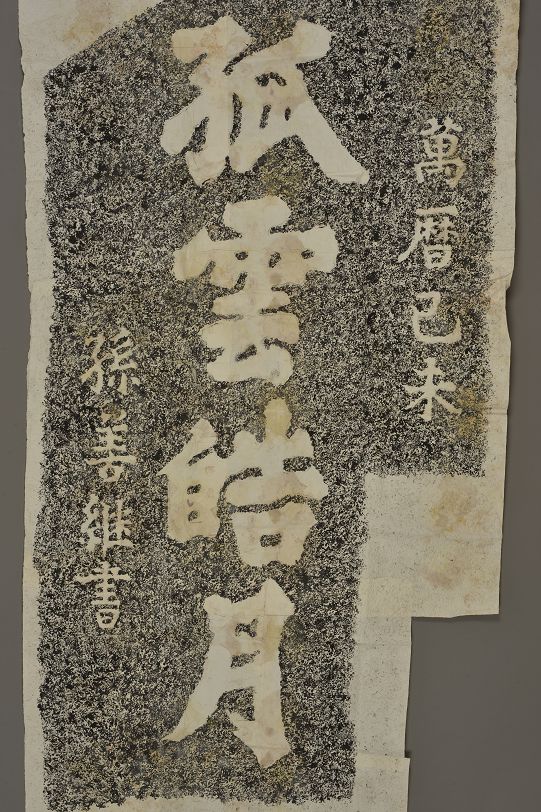 萬曆己未
孤雲皓月
孫善継書